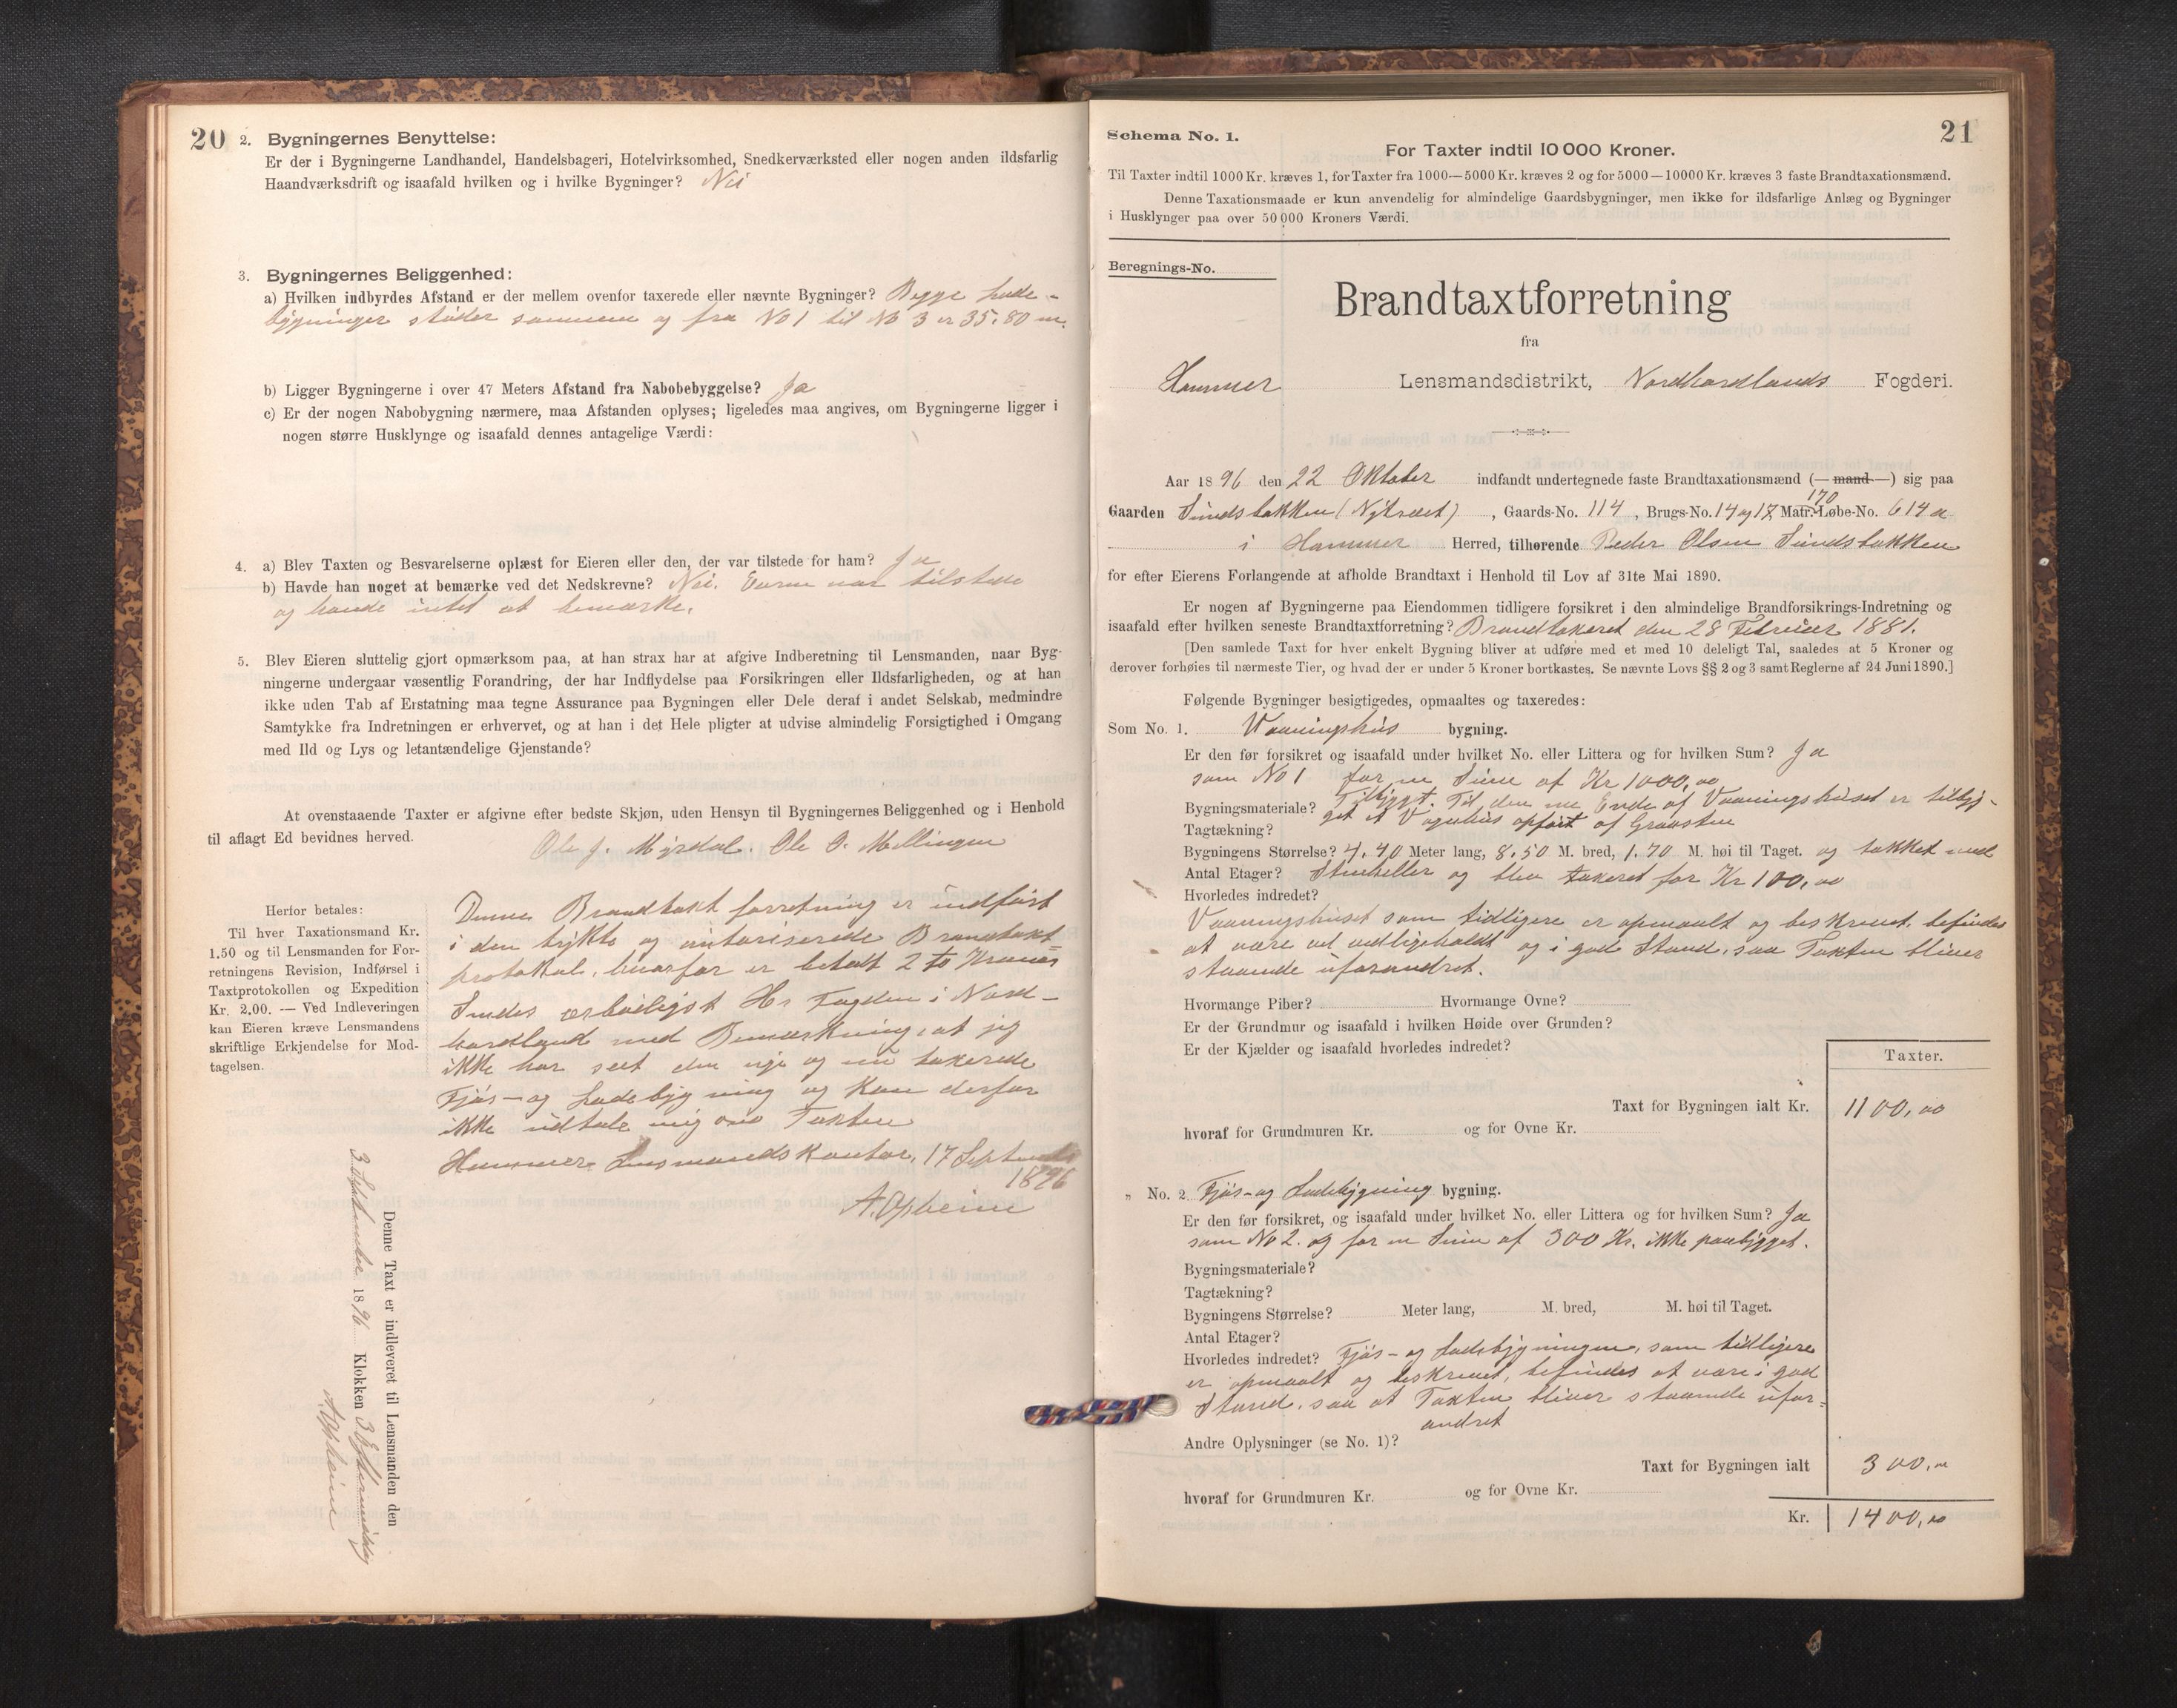 20
2. Bygningernes Benyttelse:
Er der i Bygningerne Landhandel, Handelsbageri, Hotelvirksomhed, Snedkerværksted eller nogen anden ildsfarlig
Haandværksdrift og isaafald hvilken og i hvilke Bygninger? Nei
3. Bygningernes Beliggenhed:
a) Hvilken indbyrdes Afstand er der mellem ovenfor taxerede eller nævnte Bygninger? Begge Lade-
bygninger støder sammen og fra No 1 til No 3 er 35.80 m.
b) Ligger Bygningerne i over 47 Meters Afstand fra Nabobebyggelse? Ja
c) Er der nogen Nabobygning nærmere, maa Afstanden oplyses; ligeledes maa angives, om Bygningerne ligger i
nogen større Husklynge og isaafald dennes antagelige Værdi:
4. a) Blev Taxten og Besvarelserne oplæst for Eieren eller den, der var tilstede for ham? Ja
b) Havde han noget at bemærke ved det Nedskrevne? Nei. Eieren var tilstede
og havde intet at bemærke.
5. Blev Eieren sluttelig gjort opmærksom paa, at han strax har at afgive Indberetning til Lensmanden, naar Byg-
ningerne undergaar væsentlig Forandring, der har Indflydelse paa Forsikringen eller Ildsfarligheden, og at han
ikke uden Tab af Erstatning maa tegne Assurance paa Bygningen eller Dele deraf i andet Selskab, medmindre
Samtykke fra Indretningen er erhvervet, og at han i det Hele pligter at udvise almindelig Forsigtighed i Omgang
med Ild og Lys og letantændelige Gjenstande?
At ovenstaaende Taxter er afgivne efter bedste Skjøn, uden Hensyn til Bygningernes Beliggenhed og i Henhold
til aflagt Ed bevidnes herved.
Ole J. Myrdal. Ole O. Mellingen
Herfor betales:
Til hver Taxationsmand Kr.
1.50 og til Lensmanden for For-
retningens Revision, Indførsel i
Taxtprotokollen og Expedition
Kr. 2.00. — Ved Indleveringen
kan Eieren kræve Lensmandens
skriftlige Erkjendelse for Mod-
tagelsen.
Denne Brandtaxt forretning er indført
i den trykte og autoriserede Brandtaxt=
protokol, hvorfor er betalt 2 to Kroner
Sendes ærbødigst Hr Fogden i Nord-
hordland med Bemærkning, at jeg
ikke har seet den nye og nu taxerede
Fjøs- og Ladebygning og kan derfor
ikke udtale mig om Taxten
Hammer Lensmandskontor, 17 September
1896
A. Opheim
Denne Taxt er indleveret til Lensmanden den
3 September 1896 Klokken 3 Eftermiddag
A. Opheim
21
Schema No. 1.
For Taxter indtil 10 000 Kroner.
Til Taxter indtil 1000 Kr. kræves 1, for Taxter fra 1000—5000 Kr. kræves 2 og for 5000—10000 Kr. kræves 3 faste Brandtaxationsmænd.
Denne Taxationsmaade er kun anvendelig for almindelige Gaardsbygninger, men ikke for ildsfarlige Anlæg og Bygninger
i Husklynger paa over 50 000 Kroners Værdi.
Beregnings-No.
Brandtaxtforretning
fra
Hammer Lensmandsdistrikt, Nordhordlands Fogderi.
Aar 1896 den 22 Oktober indfandt undertegnede faste Brandtaxationsmænd (—mand—) sig paa
170
Gaarden Sundstakken (Nytrædt), Gaards-No. 114, Brugs-No. 14 og 17, Matr.-Løbe-No. 614 a
i Hammer Herred, tilhørende Peder Olsen Sundstakken
for efter Eierens Forlangende at afholde Brandtaxt i Henhold til Lov af 31te Mai 1890.
Er nogen af Bygningerne paa Eiendommen tidligere forsikret i den almindelige Brandforsikrings-Indretning og
isaafald efter hvilken seneste Brandtaxtforretning? Brandtakeret den 28 Februar 1881.
[Den samlede Taxt for hver enkelt Bygning bliver at udføre med et med 10 deleligt Tal, saaledes at 5 Kroner og
derover forhøies til nærmeste Tier, og hvad der er under 5 Kroner bortkastes. Se nævnte Lovs §§ 2 og 3 samt Reglerne af 24 Juni 1890.]
Følgende Bygninger besigtigedes, opmaaltes og taxeredes:
Som No. 1. Vaaningshus bygning.
Er den før forsikret og isaafald under hvilket No. eller Littera og for hvilken Sum? Ja
som No 1 for en Sum af Kr 1000,00
Bygningsmateriale? Tilbygt. Til den ene Ende af Vaaningshuset er tilbyg-
Tagtækning? get et Vognhus opført af Graasten
Bygningens Størrelse? 4.40 Meter lang, 8.50 M. bred, 1.70 M. høi til Taget. og takket med
Antal Etager? Stenheller og blev takeret for Kr 100,00
Hvorledes indredet?
Vaaningshuset som tidligere er opmaalt og beskrevet, befindes
at være vel vedligeholdt og i god Stand, saa Taxten bliver
staaende uforandret.
Hvormange Piber? Hvormange Ovne?
Er der Grundmur og isaafald i hvilken Høide over Grunden?
Er der Kjælder og isaafald hvorledes indredet?
Taxter.
Taxt for Bygningen ialt Kr. 1100,00
hvoraf for Grundmuren Kr. og for Ovne Kr.
„ No. 2 Fjøs- og Ladebygning bygning.
Er den før forsikret, og isaafald under hvilket No. eller Littera og for hvilken Sum? Ja
som No 2. og for en Sum af 300 Kr. ikke paabygget.
Bygningsmateriale?
Tagtækning?
Bygningens Størrelse? Meter lang, M. bred, M. høi til Taget.
Antal Etager?
Hvorledes indredet? Fjøs- og Ladebygningen, som tidligere
er opmaalt og beskrevet, befindes at være i god
Stand, saa at Taxten bliver staaende ufor=
andret
Andre Oplysninger (se No. 1)?
Taxt for Bygningen ialt 300,00
hvoraf for Grundmuren Kr. og for Ovne Kr.
Kr. 1400,00